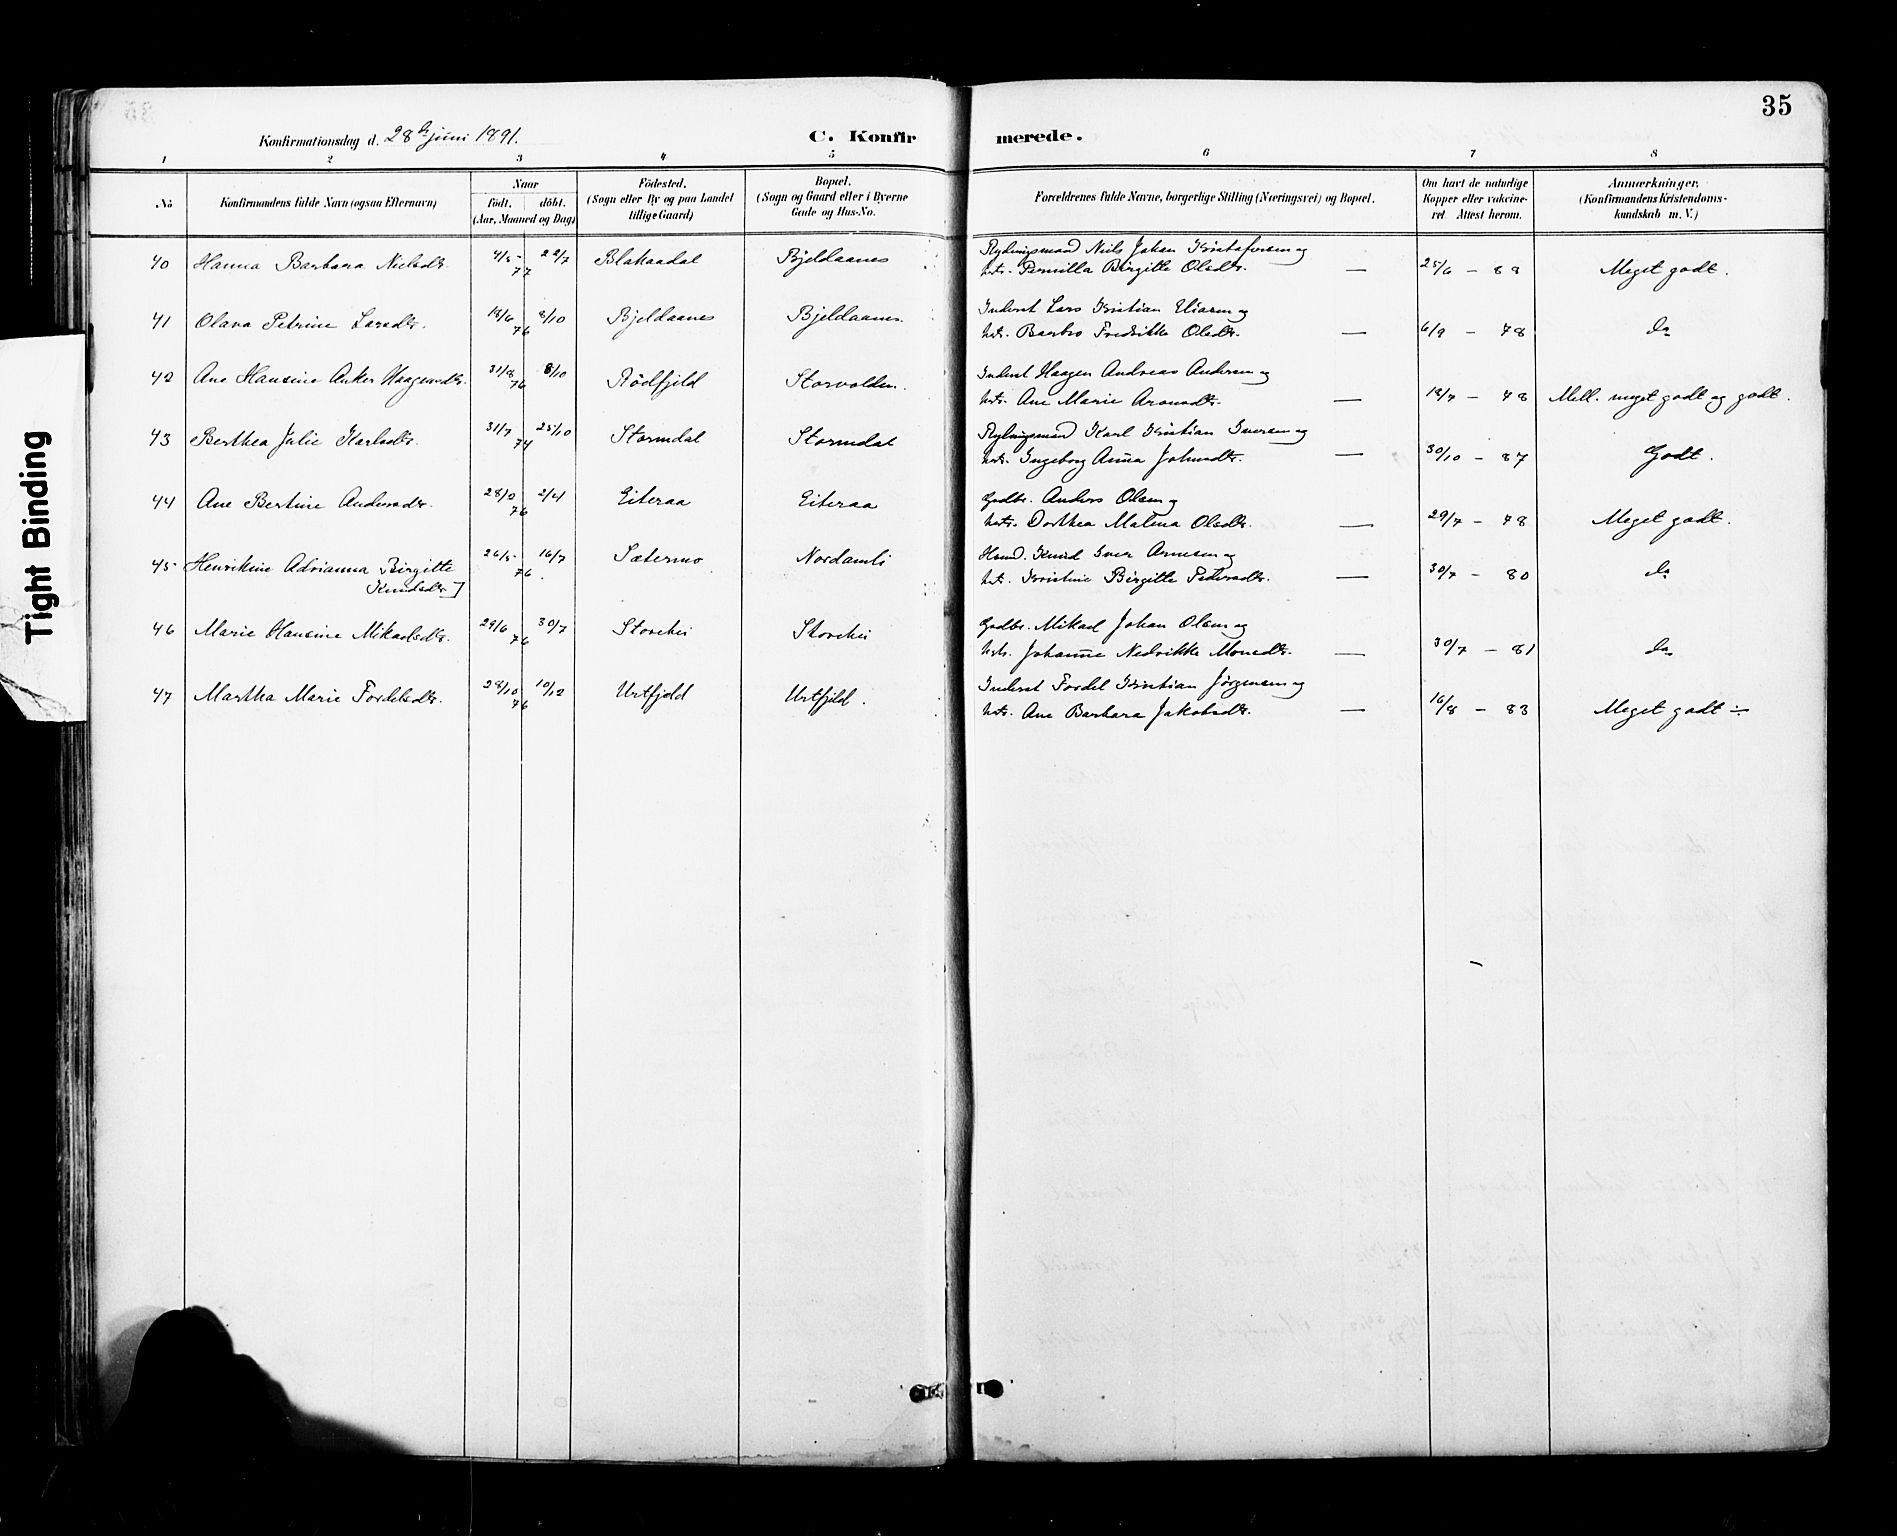 35
Konfirmationsdag d. 28de juni 1891.
C. Konfir merede.
1 2 3 4 5 6 7 8
No
Konfirmandens fulde Navn (ogsaa Efternavn)
Naar
födt. döbt.
(Aar, Maaned og Dag)
Födested.
(Sogn eller By og paa Landet
tillige Gaard)
Bopæl.
(Sogn og Gaard eller i Byerne
Gade og Hus-No.
Forældrenes fulde Navne, borgerlige Stilling (Næringsvei) og Bopæl.
Om havt de naturlige
Kopper eller vaccine-
ret Attest herom.
Anmærkninger,
(Konfirmandens Kristendoms-
kundskab m. V.)
40 Hanna Barbara Nielsdtr. 4/5 - 77 22/7 Blakaadal Bjeldaanes
Rydningsmand Niels Johan Kristofersen og
hstr. Pernilla Birgitte Olsdtr. — 25/6 - 88 Meget godt.
41 Olava Petrine Larsdtr. 18/6 76 8/10 Bjeldaanes Bjeldaanes.
Inderst Lars Kristian Eliasen og
hstr. Barbro Fredrikke Olsdtr. — 6/9 - 78 do
42 Ane Hansine Anker Haagensdtr. 31/8 76 8/10 Rödfjeld Storvolden.
Inderst Haagen Andreas Andersen og
hstr. Ane Marie Aronsdtr. — 18/7 - 78 Mell. meget godt og godt.
43 Berthea Julie Karlsdtr. 31/7 74 25/10 Stormdal Stormdal
Rydningsmand Karl Kristian Iversen og
hstr. Ingeborg Anna Johnsdtr. — 30/10 - 87 Godt.
44 Ane Bertine Andersdtr. 76 2/4 Eiteraa Eiteraa
Gadbr. Anders Olsen og
hstr. Dorthea Malena Olsdtr. — 29/7 - 78 Meget godt.
45 Henrikine Adrianna Birgitte
Knudsdtr] 26/5 - 76. 16/7 Sætermo Nordamli
Hsmd. Knud Iver Arnesen og
hstr. Kristine Birgitte Pedersdtr. — 30/7 - 80 do
46 Marie Hansine Mikalsdtr. 29/6 76 30/7 Storehei Storehei
Gadbr. Mikal Johan Olsen og
hstr. Johanne Nedrikke Monsdtr. — 30/7 - 81 do
47 Martha Marie Fordelsdtr. 28/10 76 10/12 Urtfjeld Urtfjeld.
Inderst Fordel Kristian Jörgensen og
hstr. Ane Barbara Jakobsdtr. — 16/8 - 83 Meget godt ÷
Tight Binding